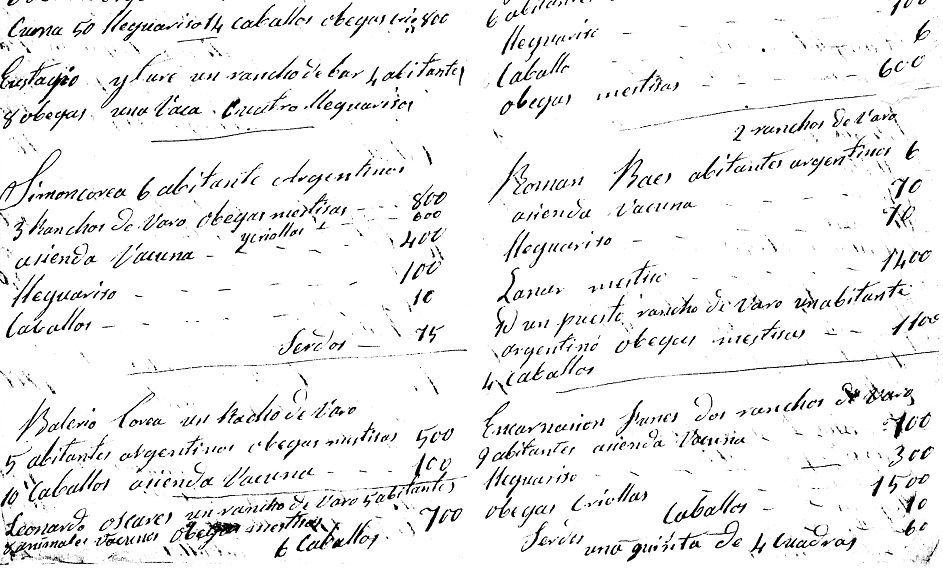 Cuma 50 Lleguariso 14 caballos obegas crio 800
Eustagio y lure un rancho de bar 4 abitantes
8 obegas una Vaca Cuatro lleguarisos
Simon corea 6 abitante Argentinos
3 Ranchos de Varo obegas mestisas 800
y criollas 600
asienda Vacuna 400
lleguariso 100
Caballos 10
Serdos 75
Balerio Corea un Racho de Varo
5 abitantes argentinos obegas mestisas 500
10 Caballos asienda Vacuna 100
Leonardo oscares un rancho de Varo 5 abitantes
animales Vacunos obegas mestisas 700
6 Caballos
6 abitantes 100
lleguariso 6
Caballo
obegas mestisas 600
2 ranchos de Varo
Roman Baes abitantes argentinos 6
asienda Vacuna 70
lleguariso 70
Lanar mestiso 1400
un puesto rancho de Varo un abitante
argentino obegas mestisas 1100
4 caballos
Encarnacion Funes dos ranchos de Varo
9 abitantes asienda Vacuna 700
lleguariso 300
obegas Criollas 1500
Caballos 10
Serdos 60
una quinta de 4 cuadras